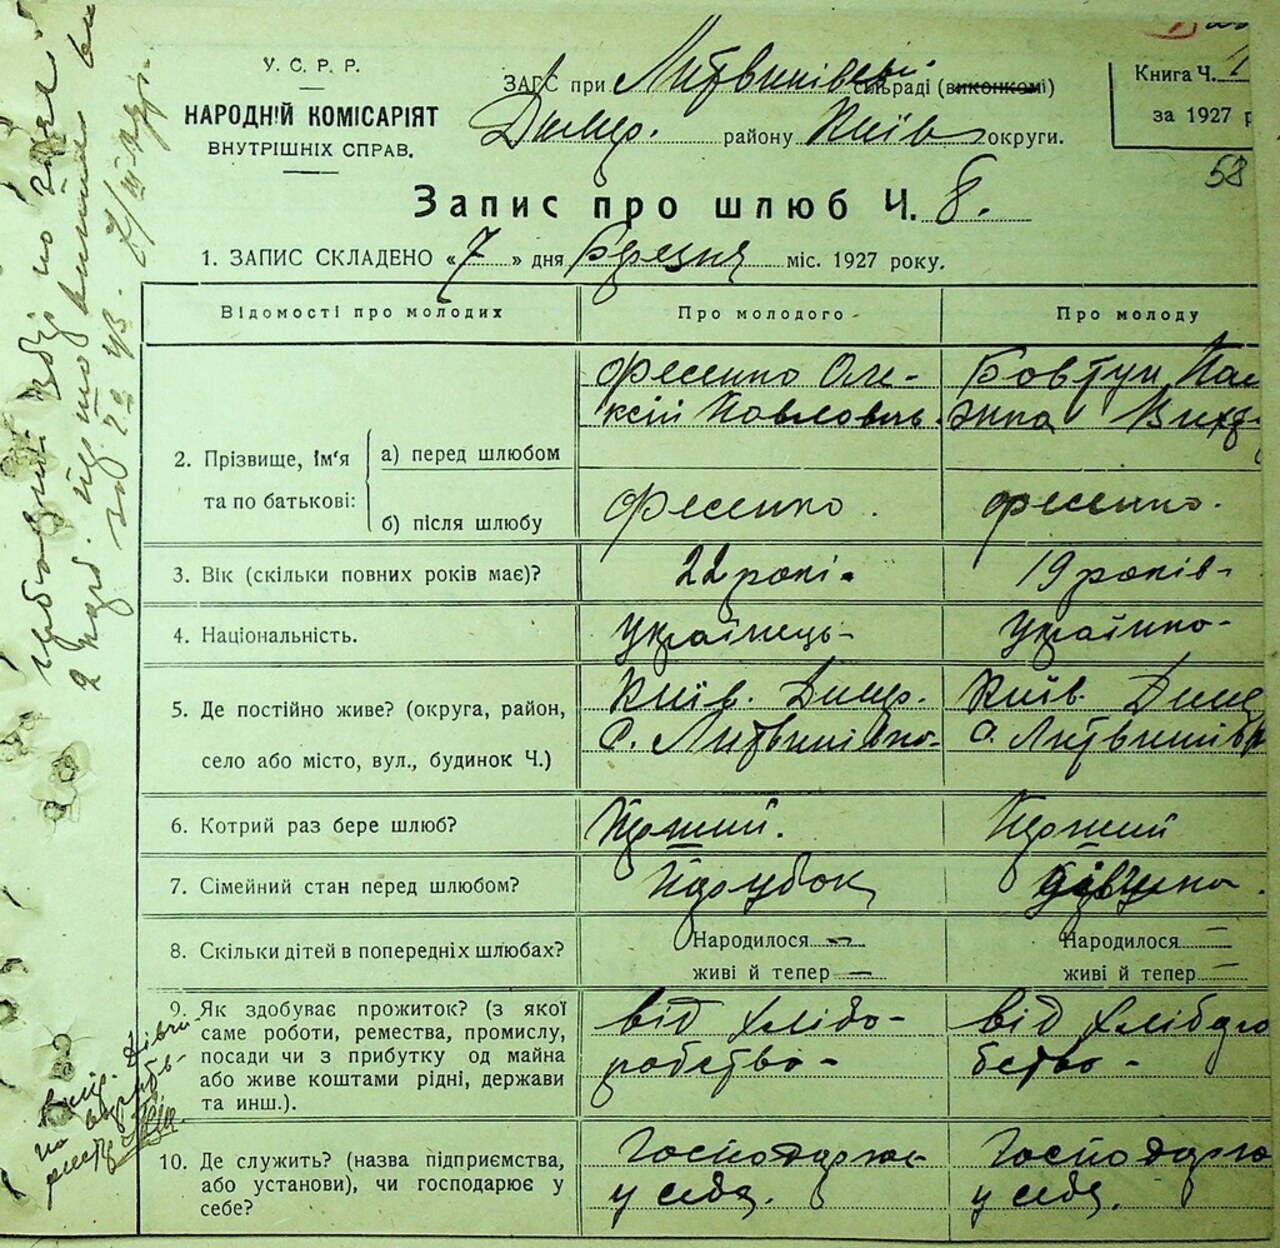 У. С. Р. Р.
НАРОДНІЙ КОМІСАРІЯТ
ВНУТРІШНІХ СПРАВ.
ЗАГС при Литвинівській сільраді (виконкомі)
Димер. району Київ округи.
Книга Ч. 1
за 1927 р
58
Запис про шлюб Ч. 8.
1. ЗАПИС СКЛАДЕНО «7» дня Березня міс. 1927 року.
Відомості про молодих
Про молодого
Про молоду
2. Прізвище, ім'я та по батькові:
а) перед шлюбом
Фесенко Оле-
ксій Павлович.
Бовтун
б) після шлюбу
Фесенко.
Фесенко.
3. Вік (скільки повних років має)?
22 рокі.
19 років-
4. Національність.
Українець-
Українка-
5. Де постійно живе? (округа, район,
село або місто, вул., будинок Ч.)
Київ. Димер.
С. Литвинівка-
Київ. Димер
С. Литвинівка
6. Котрий раз бере шлюб?
Перший.
Перший
7. Сімейний стан перед шлюбом?
Парубок
Дівчина.
8. Скільки дітей в попередніх шлюбах?
Народилося —
живі й тепер —
Народилося —
живі й тепер —
9. Як здобуває прожиток? (з якої
саме роботи, ремества, промислу,
посади чи з прибутку од майна
або живе коштами рідні, держави
та инш.).
від хлібо-
робства-
від хліборо
бства-
10. Де служить? (назва підприємства,
або установи), чи господарює у
себе?
Господарює
у себе.
Господарює
у себе.